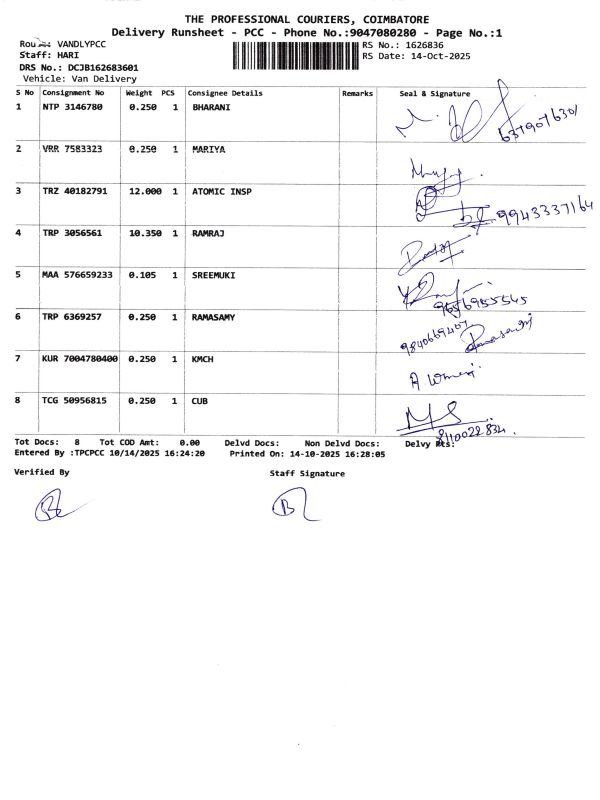 THE PROFESSIONAL COURIERS, COIMBATORE
Delivery Runsheet - PCC - Phone No.:9047080280 - Page No.:1
VANDLYPCC RS No.: 1626836
Staff: HARI RS Date: 14-Oct-2025
DRS No.: DCJB162683601
Vehicle: Van Delivery
S No Consignment No Weight PCS Consignee Details Remarks Seal & Signature
1 NTP 3146780 0.250 1 BHARANI
2 VRR 7583323 0.250 1 MARIYA
3 TRZ 40182791 12.000 1 ATOMIC INSP 9943337164
4 TRP 3056561 10.350 1 RAMRAJ
5 MAA 576659233 0.105 1 SREEMUKI
6 TRP 6369257 0.250 1 RAMASAMY
7 KUR 7004780400 0.250 1 KMCH
8 TCG 50956815 0.250 1 CUB
Tot Docs: 8 Tot COD Amt: 0.00 Delvd Docs: Non Delvd Docs: Delvy
Entered By :TPCPCC 10/14/2025 16:24:20 Printed On: 14-10-2025 16:28:05
Verified By Staff Signature